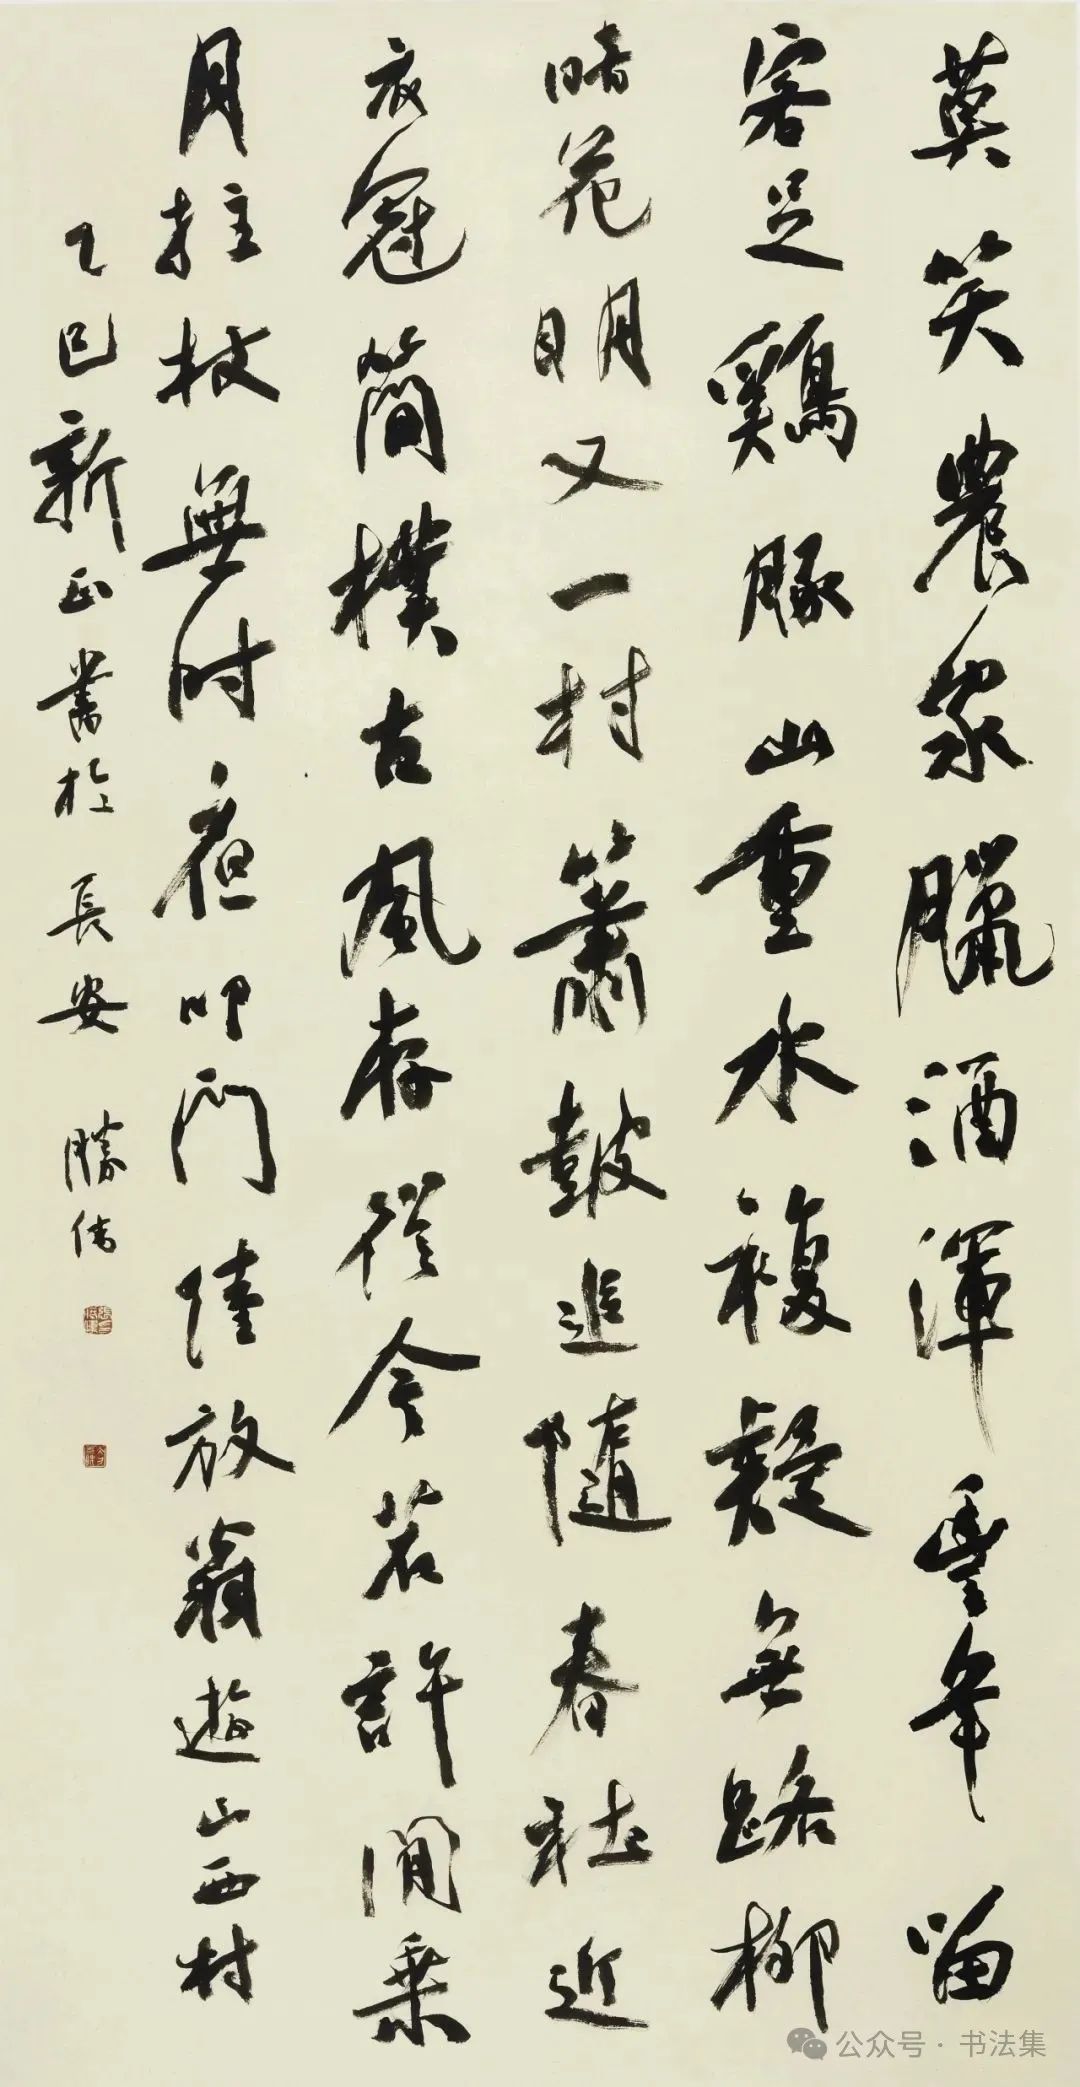 莫笑農家臘酒渾豐年留
客足鷄豚山重水複疑無路柳
暗花明又一村簫鼓追隨春社近
衣冠簡樸古風存從今若許閒乘
月拄杖無时夜叩門陸放翁遊山西村
乙巳新正書於長安勝偉
公众号·书法集